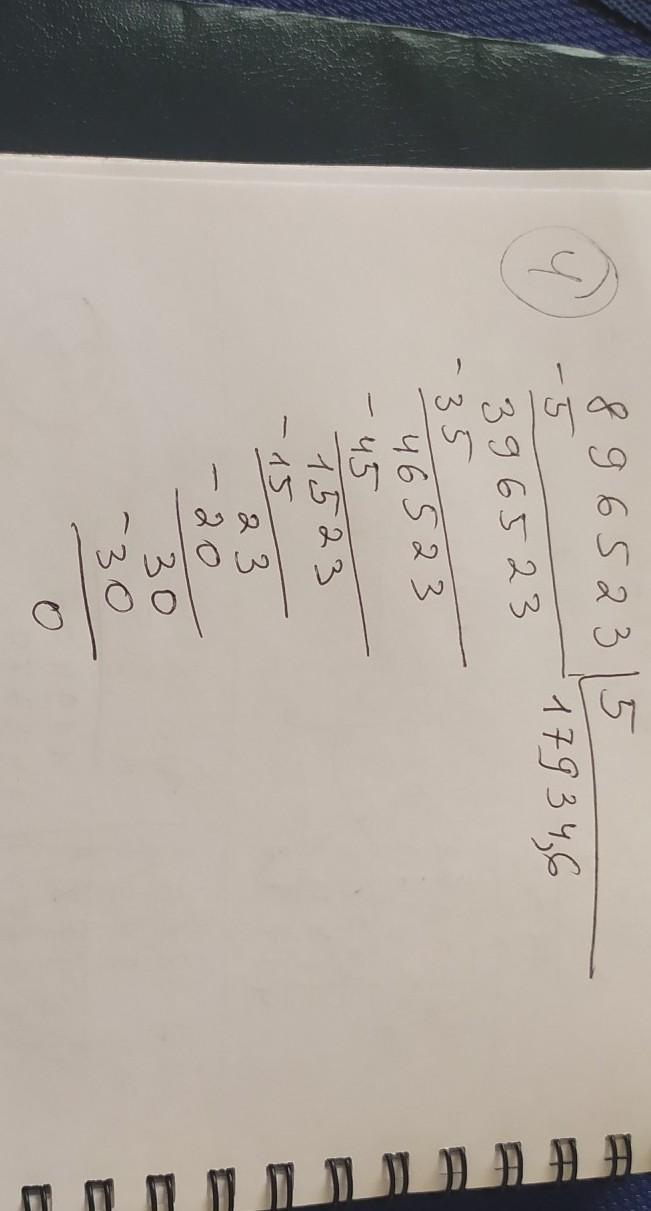 4
896523 5
-5 17934,6
396523
-35
46523
-45
1523
-15
23
-20
30
-30
0